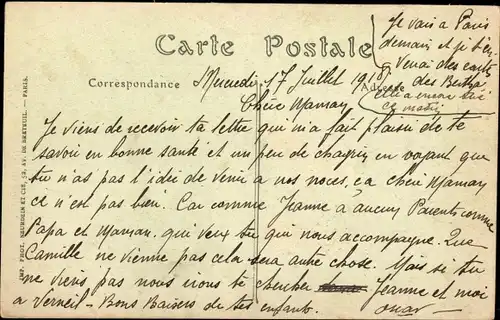 Je vais à Paris
demain et je t'en-
verrai des cartes
des Bertha
elle a encore tiré
ce matin
Carte Postale
Correspondance
Adresse
Mercredi 17 Juillet 1918
Chère Maman
Je viens de recevoir ta lettre qui m'a fait plaisir de te
savoir en bonne santé et un peu de chagrin en voyant que
tu n'as pas l'idée de venir à nos noces, ça chère Maman
ce n'est pas bien. Car comme Jeanne à aucun Parents comme
Papa et Maman, que veux tu qui nous accompagne. Que
Camille ne vienne pas cela sera autre chose. Mais si tu
ne viens pas nous irons te chercher Jeanne et moi
à Verneuil - Bons Baisers de tes enfants.
IMP. PHOT. NEURDEIN ET CIE, 52, AV. DE BRETEUIL. - PARIS.